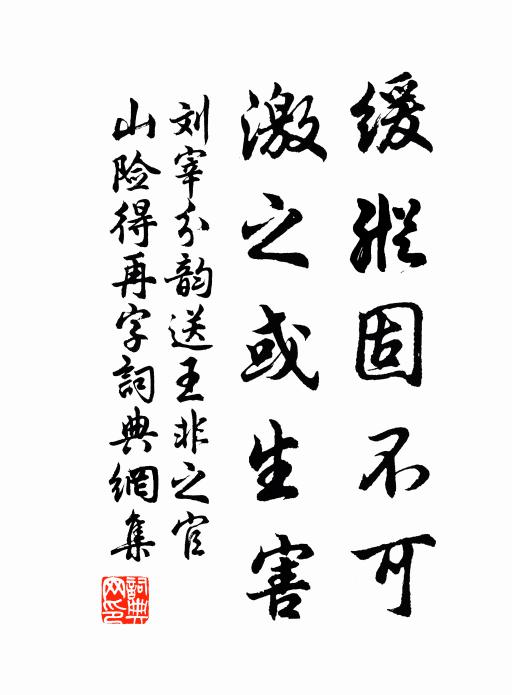 缓纵固不可
激之或生害
刘宰分韵送王非之官
山险得再字詞典網集
詞典
网印